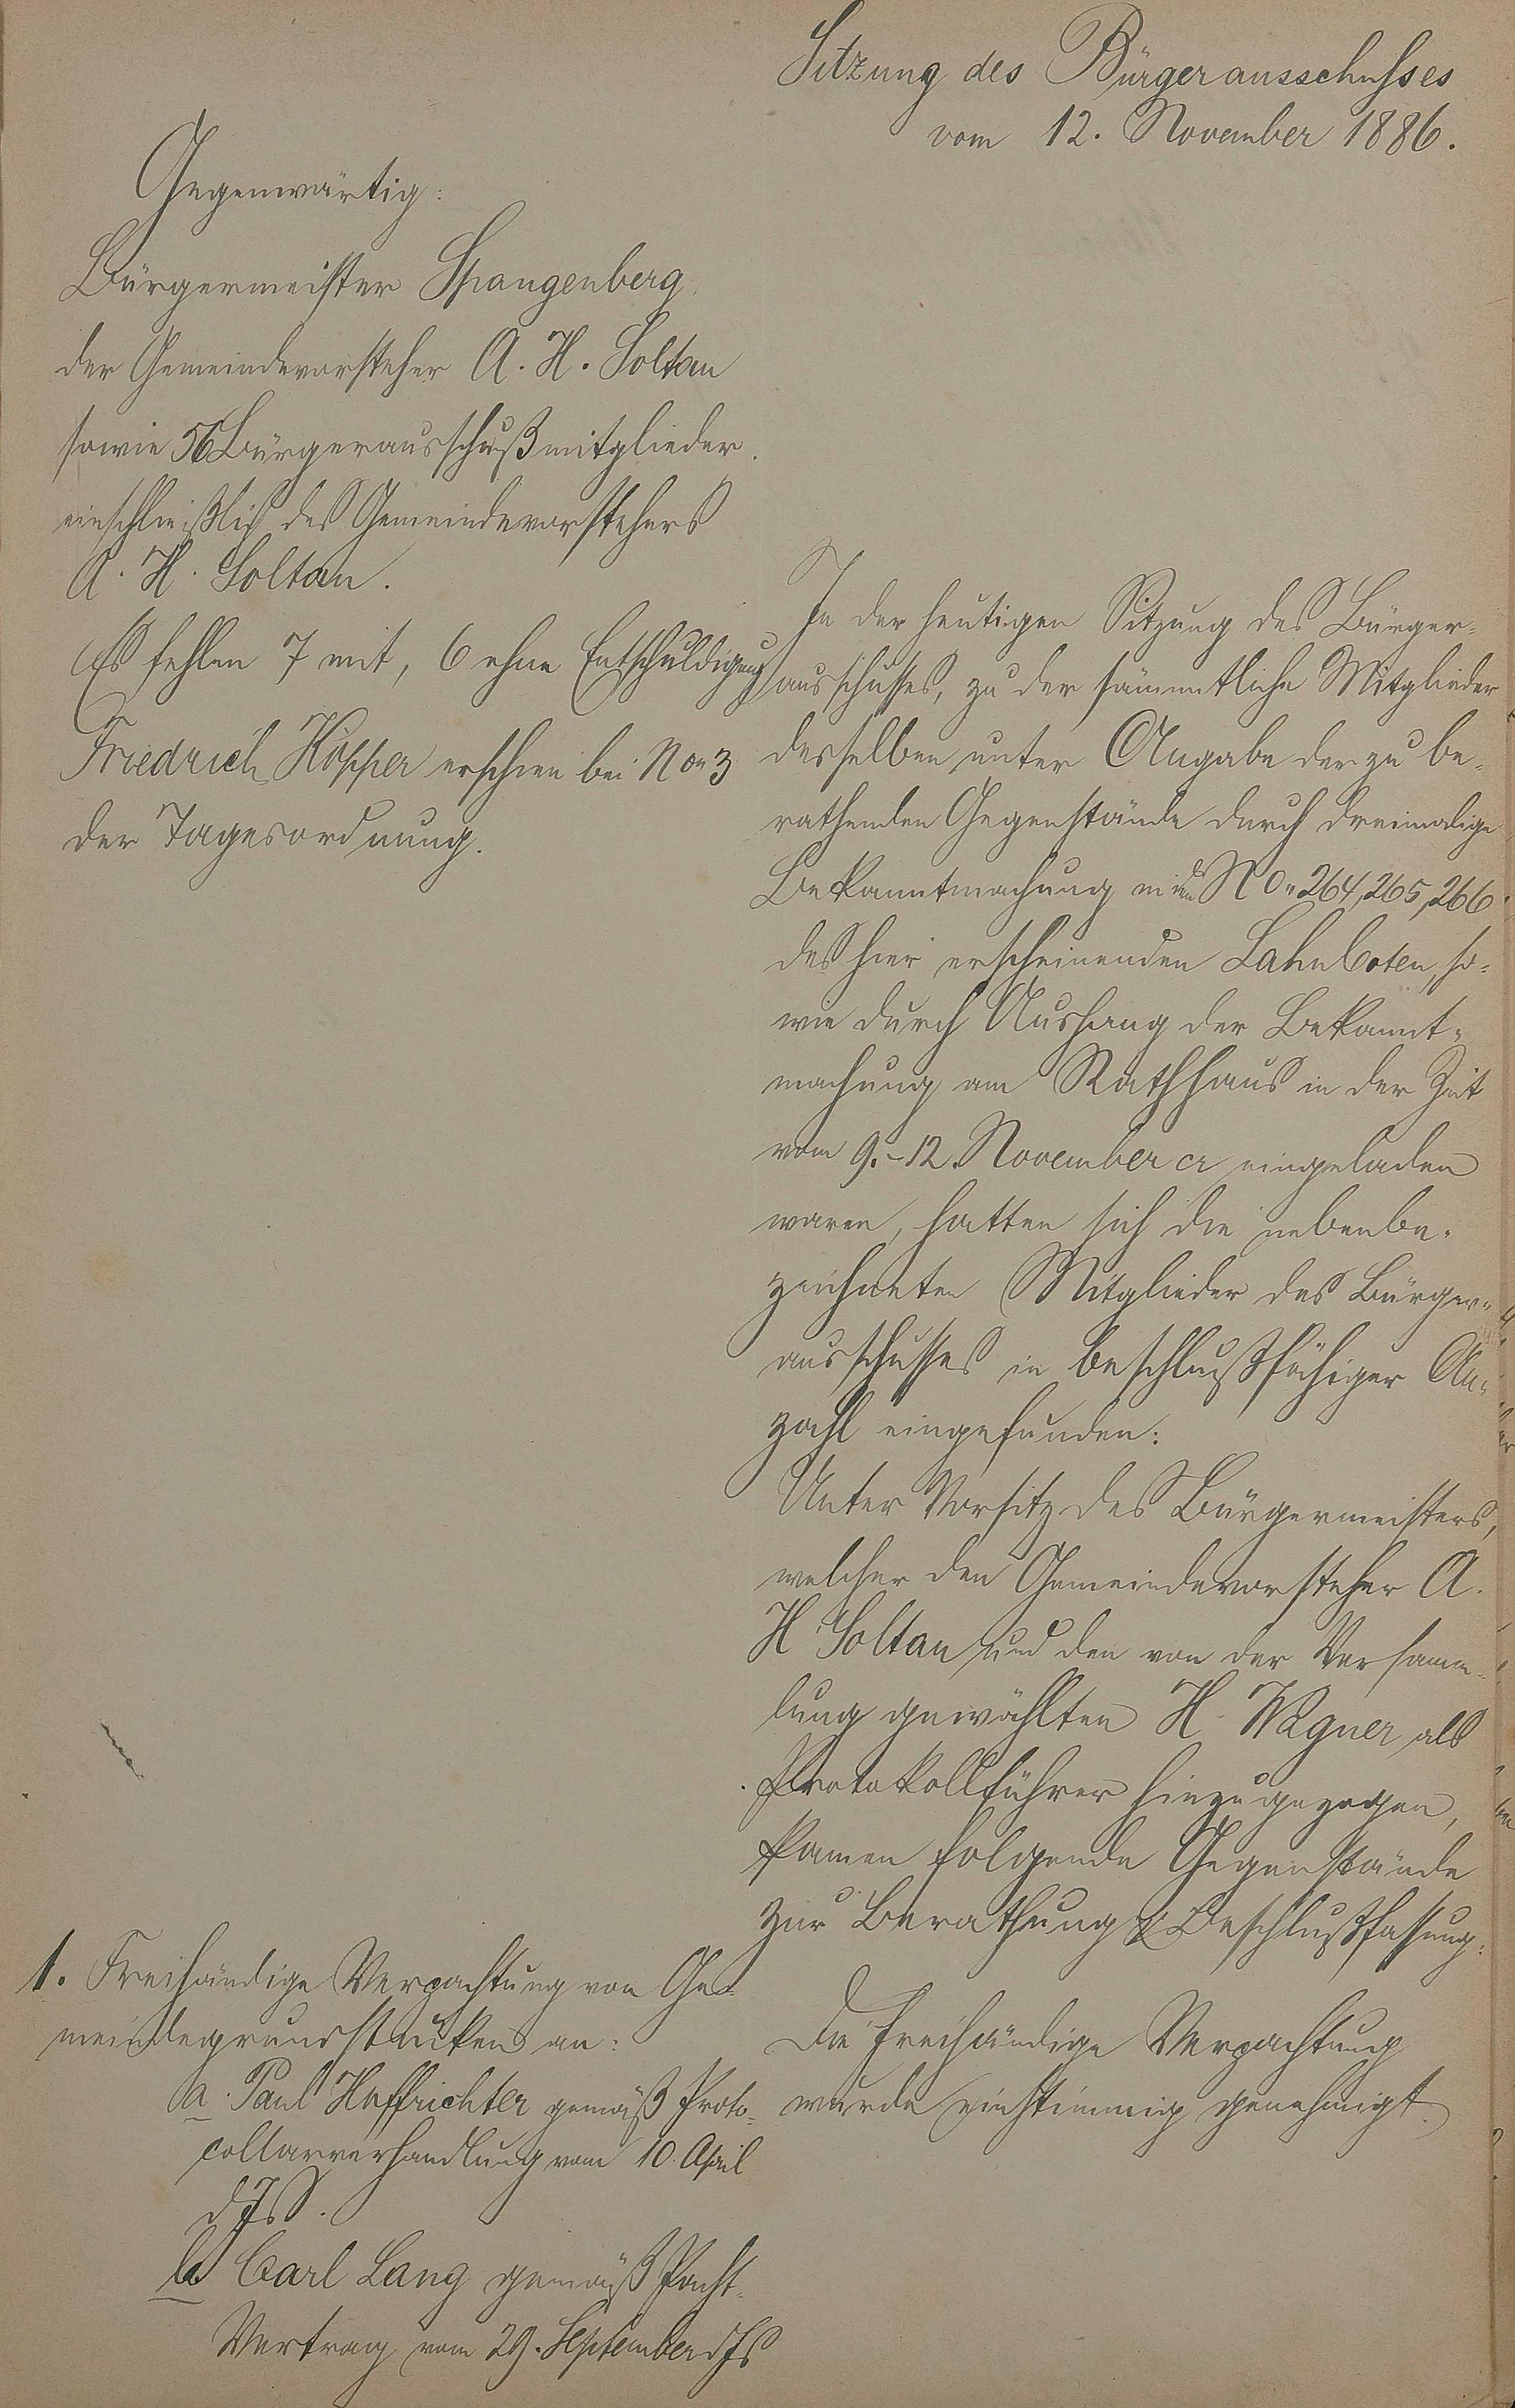 Sitzung des Bürgerausschusses
vom 12. November 1886.
Gegenwärtig:
Bürgermeister Spangenberg,
der Gemeindevorsteher A. H. Soltau
sowie 56 Bürgerausschußmitglieder.
einschließlich des Gemeindevorstehers
A. H. Soltau.
Es fehlen 7 mit, 6 ohne Entschuldigung
Friedrich Höpper erschien bei No 3
der Tagesordnung.
In der heutigen Sitzung des Bürger-
ausschusses, zu der sämmtliche Mitglieder
desselben unter Angabe der zu be-
rathenden Gegenstände durch dreimalige
Bekanntmachung in den No 264, 265, 266
des hier erscheinenden Lahnboten, so-
wie durch Aushang der Bekannt-
machung am Rathhaus in der Zeit
vom 9.-12. November cr eingeladen
waren, hatten sich die nebenbe-
zeichneten Mitglieder des Bürger-
ausschusses in beschlußfähiger An-
zahl eingefunden:
Unter Vorsitz des Bürgermeisters,
welcher den Gemeindevorsteher A.
H. Soltau und den von der Versamm-
lung gewählten H. Wagner als
Protokollführer hinzugezogen,
kamen folgende Gegenstände
zur Berathung & Beschlußfassung:
1. Freihändige Verpachtung von Ge-
meindegrundstücken an:
a. Paul Haffrichter gemäß Proto-
collarverhandlung vom 10. April
d Js.
b Carl Lang gemäß Pacht-
Vertrag vom 29. September d Js
Die freihändige Verpachtung
wurde einstimmig genehmigt.